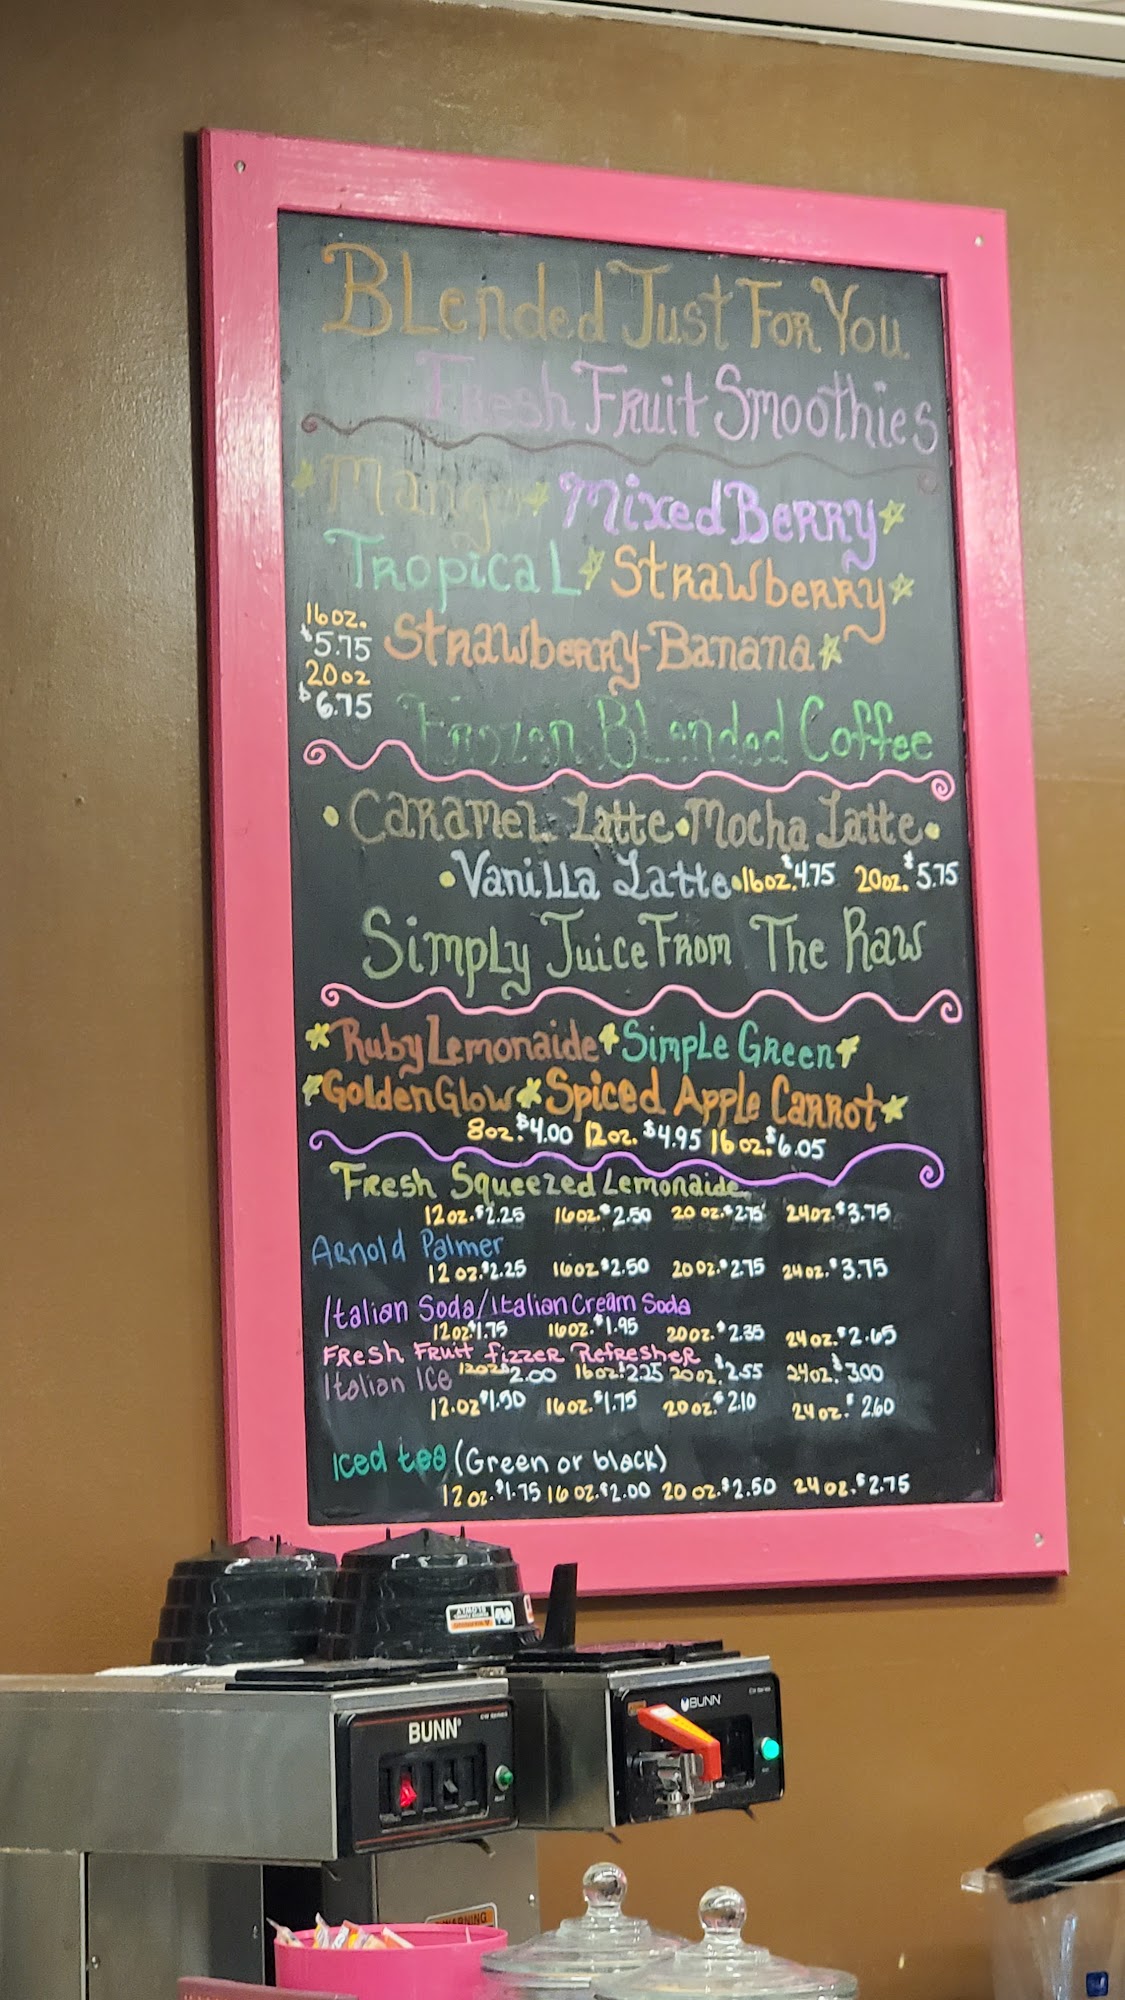 Blended Just For You
Fresh Fruit Smoothies
Mango Mixed Berry
Tropical Strawberry
16oz.
$5.75 Strawberry-Banana
20oz
$6.75
Frozen Blended Coffee
Caramel Latte Mocha Latte
Vanilla Latte 16oz. $4.75 20oz. $5.75
Simply Juice From The Raw
Ruby Lemonaide Simple Green
Golden Glow Spiced Apple Carrot
8oz. $4.00 12oz. $4.95 16oz. $6.05
Fresh Squeezed Lemonaide
12oz. $2.25 16oz. $2.50 20oz. $2.75 24oz. $3.75
Arnold Palmer
12oz. $2.25 16oz $2.50 20oz. $2.75 24oz. $3.75
Italian Soda/Italian Cream Soda
12oz $1.75 16oz. $1.95 20oz. $2.35 24oz. $2.65
Fresh Fruit fizzer Refresher
12oz $2.00 16oz. $2.25 20oz. $2.55 24oz. $3.00
Italian Ice
12.oz $1.50 16oz. $1.75 20oz. $2.10 24oz. $2.60
Iced tea (Green or black)
12oz. $1.75 16oz. $2.00 20oz. $2.50 24oz. $2.75
BUNN
BUNN
WARNING